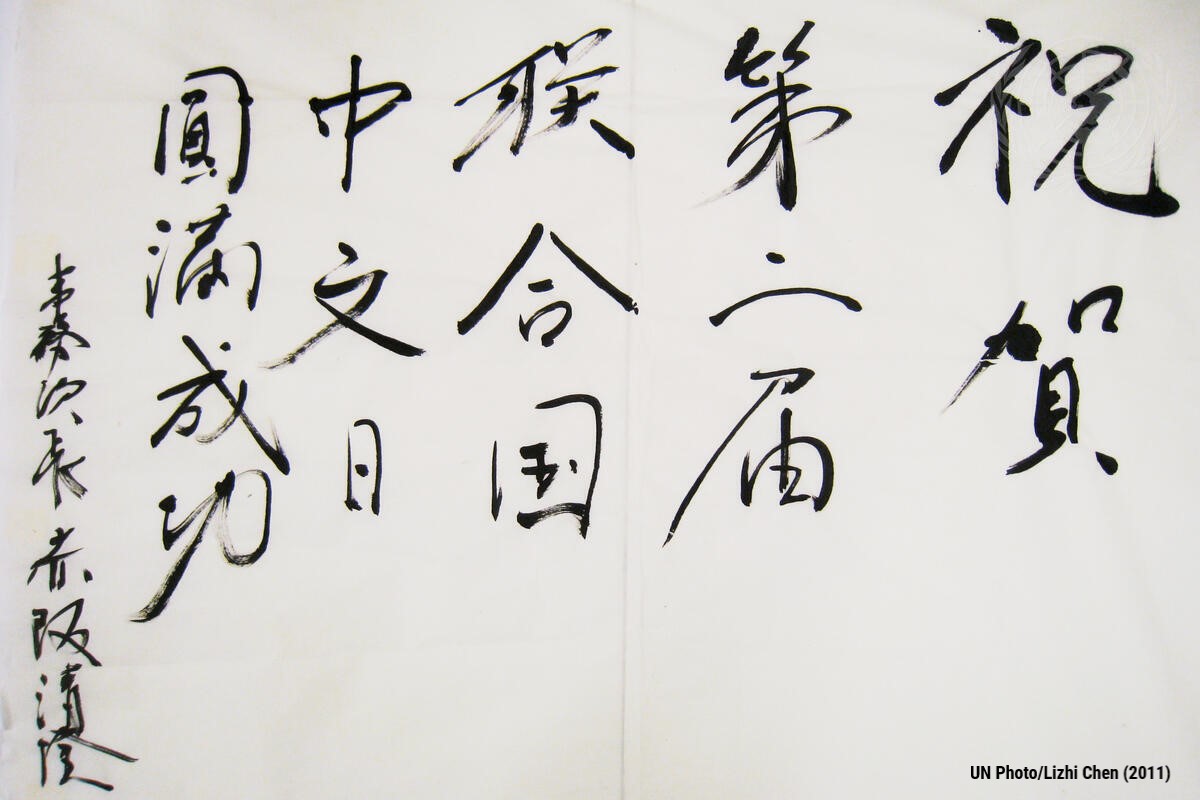 祝賀
第二届
联合国
中文日
圓滿成功
事務次長 赤阪清隆
UN Photo/Lizhi Chen (2011)